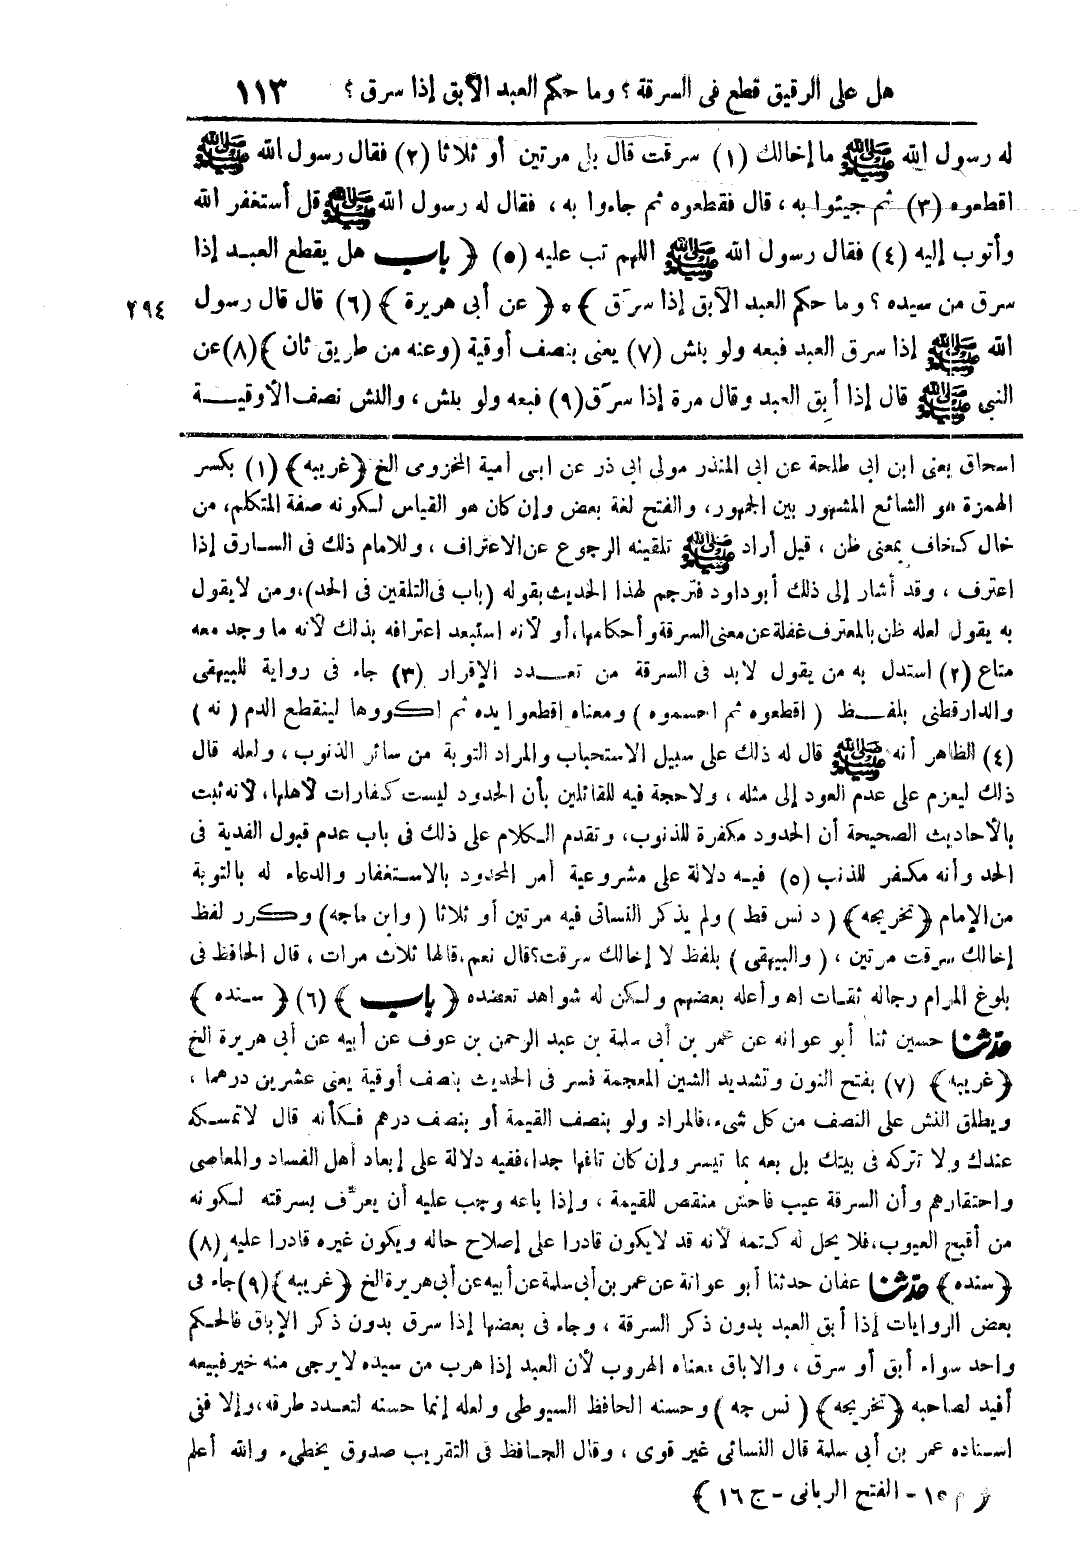 هل على الرقيق قطع فى السرقة ؟ وما حكم العبد الآبق إذا سرق ؟ ١١٣
له رسول الله ﷺ ما إخالك (١) سرقت قال بلى مرتين أو ثلاثا (٢) فقال رسول الله ﷺ
اقطعوه (٣) ثم جيئوا به ، قال فقطعوه ثم جاءوا به ، فقال له رسول الله ﷺ قل أستغفر الله
وأتوب إليه (٤) فقال رسول الله ﷺ اللهم تب عليه (٥) ﴿ باب هل يقطع العبد إذا
سرق من سيده ؟ وما حكم العبد الآبق إذا سرق ﴾ * ﴿ عن أبى هريرة ﴾ (٦) قال قال رسول ٢٩٤
الله ﷺ إذا سرق العبد فبعه ولو بنش (٧) يعنى بنصف أوقية (وعنه من طريق ثان ﴾(٨)عن
النبى ﷺ قال إذا أبق العبد وقال مرة إذا سرق(٩) فبعه ولو بنش ، والنش نصف الأوقيـة
اسحاق يعنى ابن ابى طلحة عن ابى المنذر مولى ابى ذر عن ابى أمية المخزومى الخ ﴿غريبه﴾ (١) بكسر
الهمزة هو الشائع المشهور بين الجمهور، والفتح لغة بعض وإن كان هو القياس لكونه صفة المتكلم، من
خال كخاف بمعنى ظن ، قيل أراد ﷺ تلقينه الرجوع عن الاعتراف ، وللامام ذلك فى السارق إذا
اعترف ، وقد أشار إلى ذلك أبو داود فترجم لهذا الحديث بقوله (باب فى التلقين فى الحد)،ومن لا يقول
به يقول لعله ظن بالمعترف غفلة عن معنى السرقة وأحكامها،أو لأنه استبعد اعترافه بذلك لأنه ما وجد معه
متاع (٢) استدل به من يقول لابد فى السرقة من تعـدد الإقرار (٣) جاء فى رواية للبيهقى
والدارقطنى بلفـظ ( اقطعوه ثم احسموه ) ومعناه اقطعوا يده ثم اكووها لينقطع الدم ( نه )
(٤) الظاهر أنه ﷺ قال له ذلك على سبيل الاستحباب والمراد التوبة من سائر الذنوب ، ولعله قال
ذلك ليعزم على عدم العود إلى مثله ، ولاحجة فيه للقائلين بأن الحدود ليست كفارات لأهلها، لأنه ثبت
بالأحاديث الصحيحة أن الحدود مكفرة للذنوب، وتقدم الكلام على ذلك فى باب عدم قبول الفدية فى
الحد وأنه مكفر للذنب (٥) فيه دلالة على مشروعية أمر المحدود بالاستغفار والدعاء له بالتوبة
من الإمام ﴿تخريجه﴾ ( د نس قط ) ولم يذكر النسائى فيه مرتين أو ثلاثا ( وابن ماجه) وكرر لفظ
إخالك سرقت مرتين ، ( والبيهقى ) بلفظ لا إخالك سرقت؟قال نعم،قالها ثلاث مرات ، قال الحافظ فى
بلوغ المرام رجاله ثقات اه وأعله بعضهم ولكن له شواهد تعضده ﴿ باب ﴾ (٦) ﴿ سـنده ﴾
حدثنا حسين ثنا أبو عوانه عن عمر بن أبى سلمة بن عبد الرحمن بن عوف عن أبيه عن أبى هريرة الخ
﴿غريبه﴾ (٧) بفتح النون وتشديد الشين المعجمة فسر فى الحديث بنصف أوقية يعنى عشرين درهما ،
ويطلق النش على النصف من كل شىء،فالمراد ولو بنصف القيمة أو بنصف درهم فكأنه قال لاتمسكه
عندك ولا تتركه فى بيتك بل بعه بما تيسر وإن كان تافها جدا،ففيه دلالة على إبعاد أهل الفساد والمعاصى
واحتقارهم وأن السرقة عيب فاحش منقص للقيمة ، وإذا باعه وجب عليه أن يعرّف بسرقته لكونه
من أقبح العيوب،فلا يحل له كتمه لأنه قد لايكون قادرا على إصلاح حاله ويكون غيره قادرا عليه (٨)
﴿سنده﴾ حدثنا عفان حدثنا أبو عوانة عن عمر بن أبى سلمة عن أبيه عن أبى هريرة الخ ﴿غريبه﴾(٩)جاء فى
بعض الروايات إذا أبق العبد بدون ذكر السرقة ، وجاء فى بعضها إذا سرق بدون ذكر الإباق فالحكم
واحد سواء أبق أو سرق ، والاباق معناه الهروب لأن العبد إذا هرب من سيده لايرجى منه خير فبيعه
أفيد لصاحبه ﴿تخريجه﴾ ( نس جه ) وحسنه الحافظ السيوطى ولعله إنما حسنه لتعدد طرقه،وإلا ففى
اسناده عمر بن أبى سلمة قال النسائى غير قوى ، وقال الحافظ فى التقريب صدوق يخطىء والله أعلم
﴿ م ١٥ - الفتح الربانى - ج ١٦ ﴾